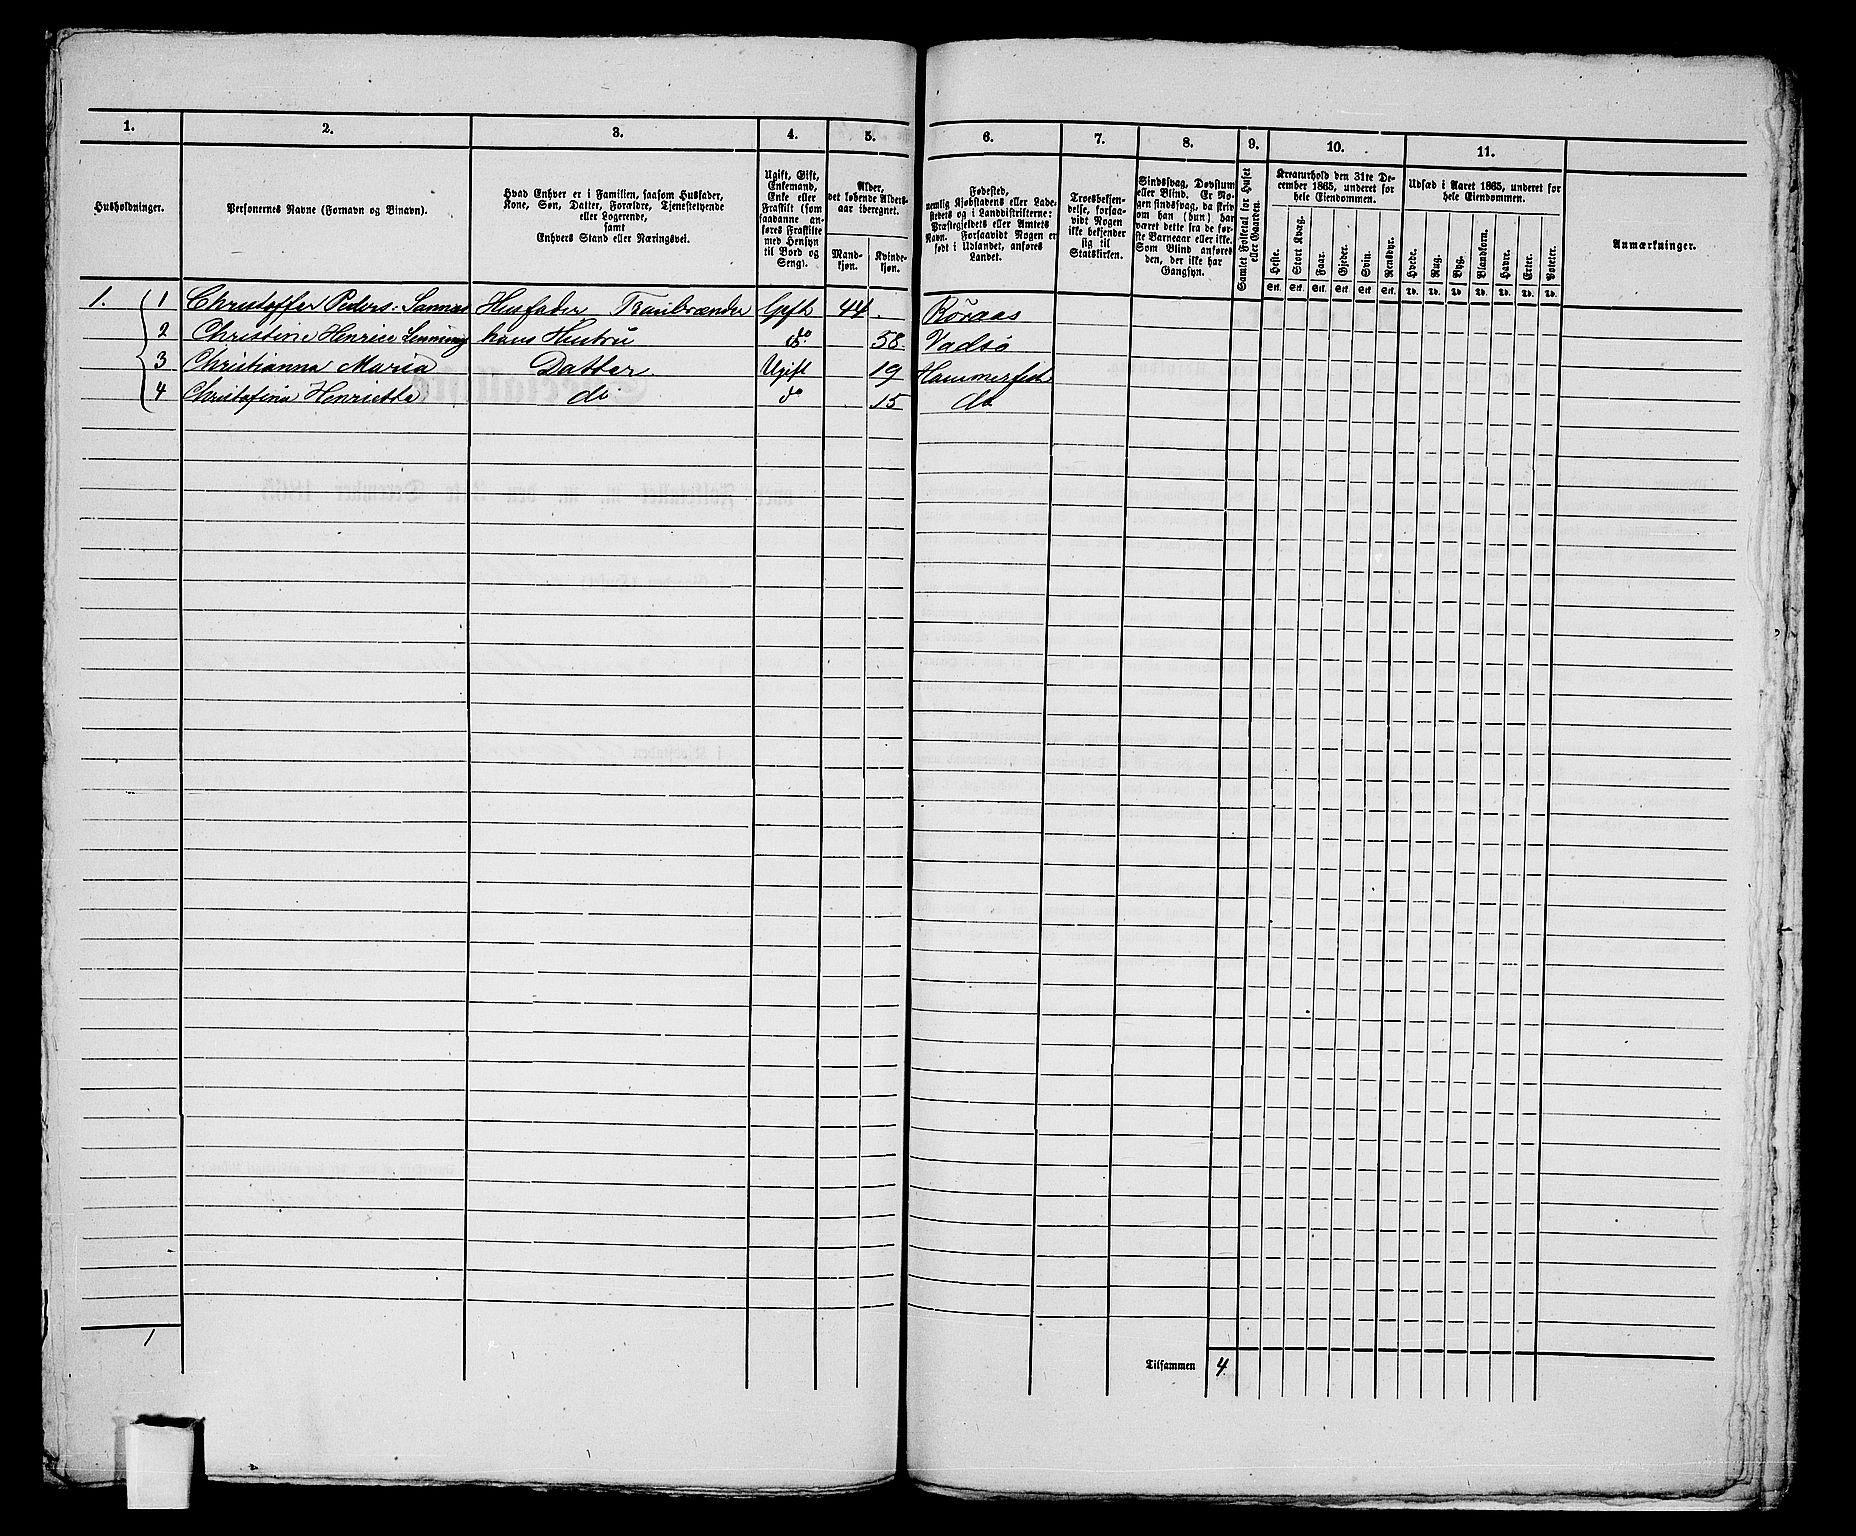 1. 2. 3. 4. 5. 6. 7. 8. 9. 10. 11.
Husholdninger.
Personernes Navne (Fornavn og Binavn).
Hvad Enhver er i Familien, saasom Husfader,
Kone, Søn, Datter, Forældre, Tjenestetyende
eller Logerende,
samt
Enhvers Stand eller Næringsvei.
Ugift, Gift,
Enkemand,
Enke eller
Fraskilt (som
saadanne an-
føres Fraskilte
med Hensyn
til Bord og
Seng).
Alder,
det løbende Alders-
aar iberegnet.
Mand-
kjøn.
Kvinde-
kjøn.
Fødested,
nemlig Kjøbstadens eller Lade-
stedets og i Landdistrikterne:
Præstegjeldets eller Amtets
Navn. Forsaavidt Nogen er
født i Udlandet, anføres
Landet.
Troesbekjen-
delse, forsaa-
vidt Nogen
ikke bekjender
sig til
Statskirken.
Sindssvag, Døvstum
eller Blind. Er No-
gen sindssvag, da skriv
om han (hun) har
været dette fra de før-
ste Barneaar eller ikke.
Som Blind anføres
den, der ikke har
Gangsyn.
Samlet Folketal for Huset
eller Gaarden.
Kreaturhold den 31te De-
cember 1865, underet for
hele Eiendommen.
Heste. Stort Kvæg. Faar. Gjeder. Svin. Rensdyr.
Stk. Stk. Stk. Stk. Stk. Stk.
Udsæd i Aaret 1865, underet for
hele Eiendommen.
Hvede. Rug. Byg. Blandkorn. Havre. Erter. Poteter.
Td. Td. Td. Td. Td. Td. Td.
Anmærkninger.
1. 1 Christoffer Peders: Sannes Husfader Gift 44 . Röraas
2 Christine Henrice hans Hustru do. 58. Vadsö
3 Christianna Maria Datter Ugift 19 Hammerfest
4 Christofina Henrietta do do 15 do
1
Tilsammen 4.